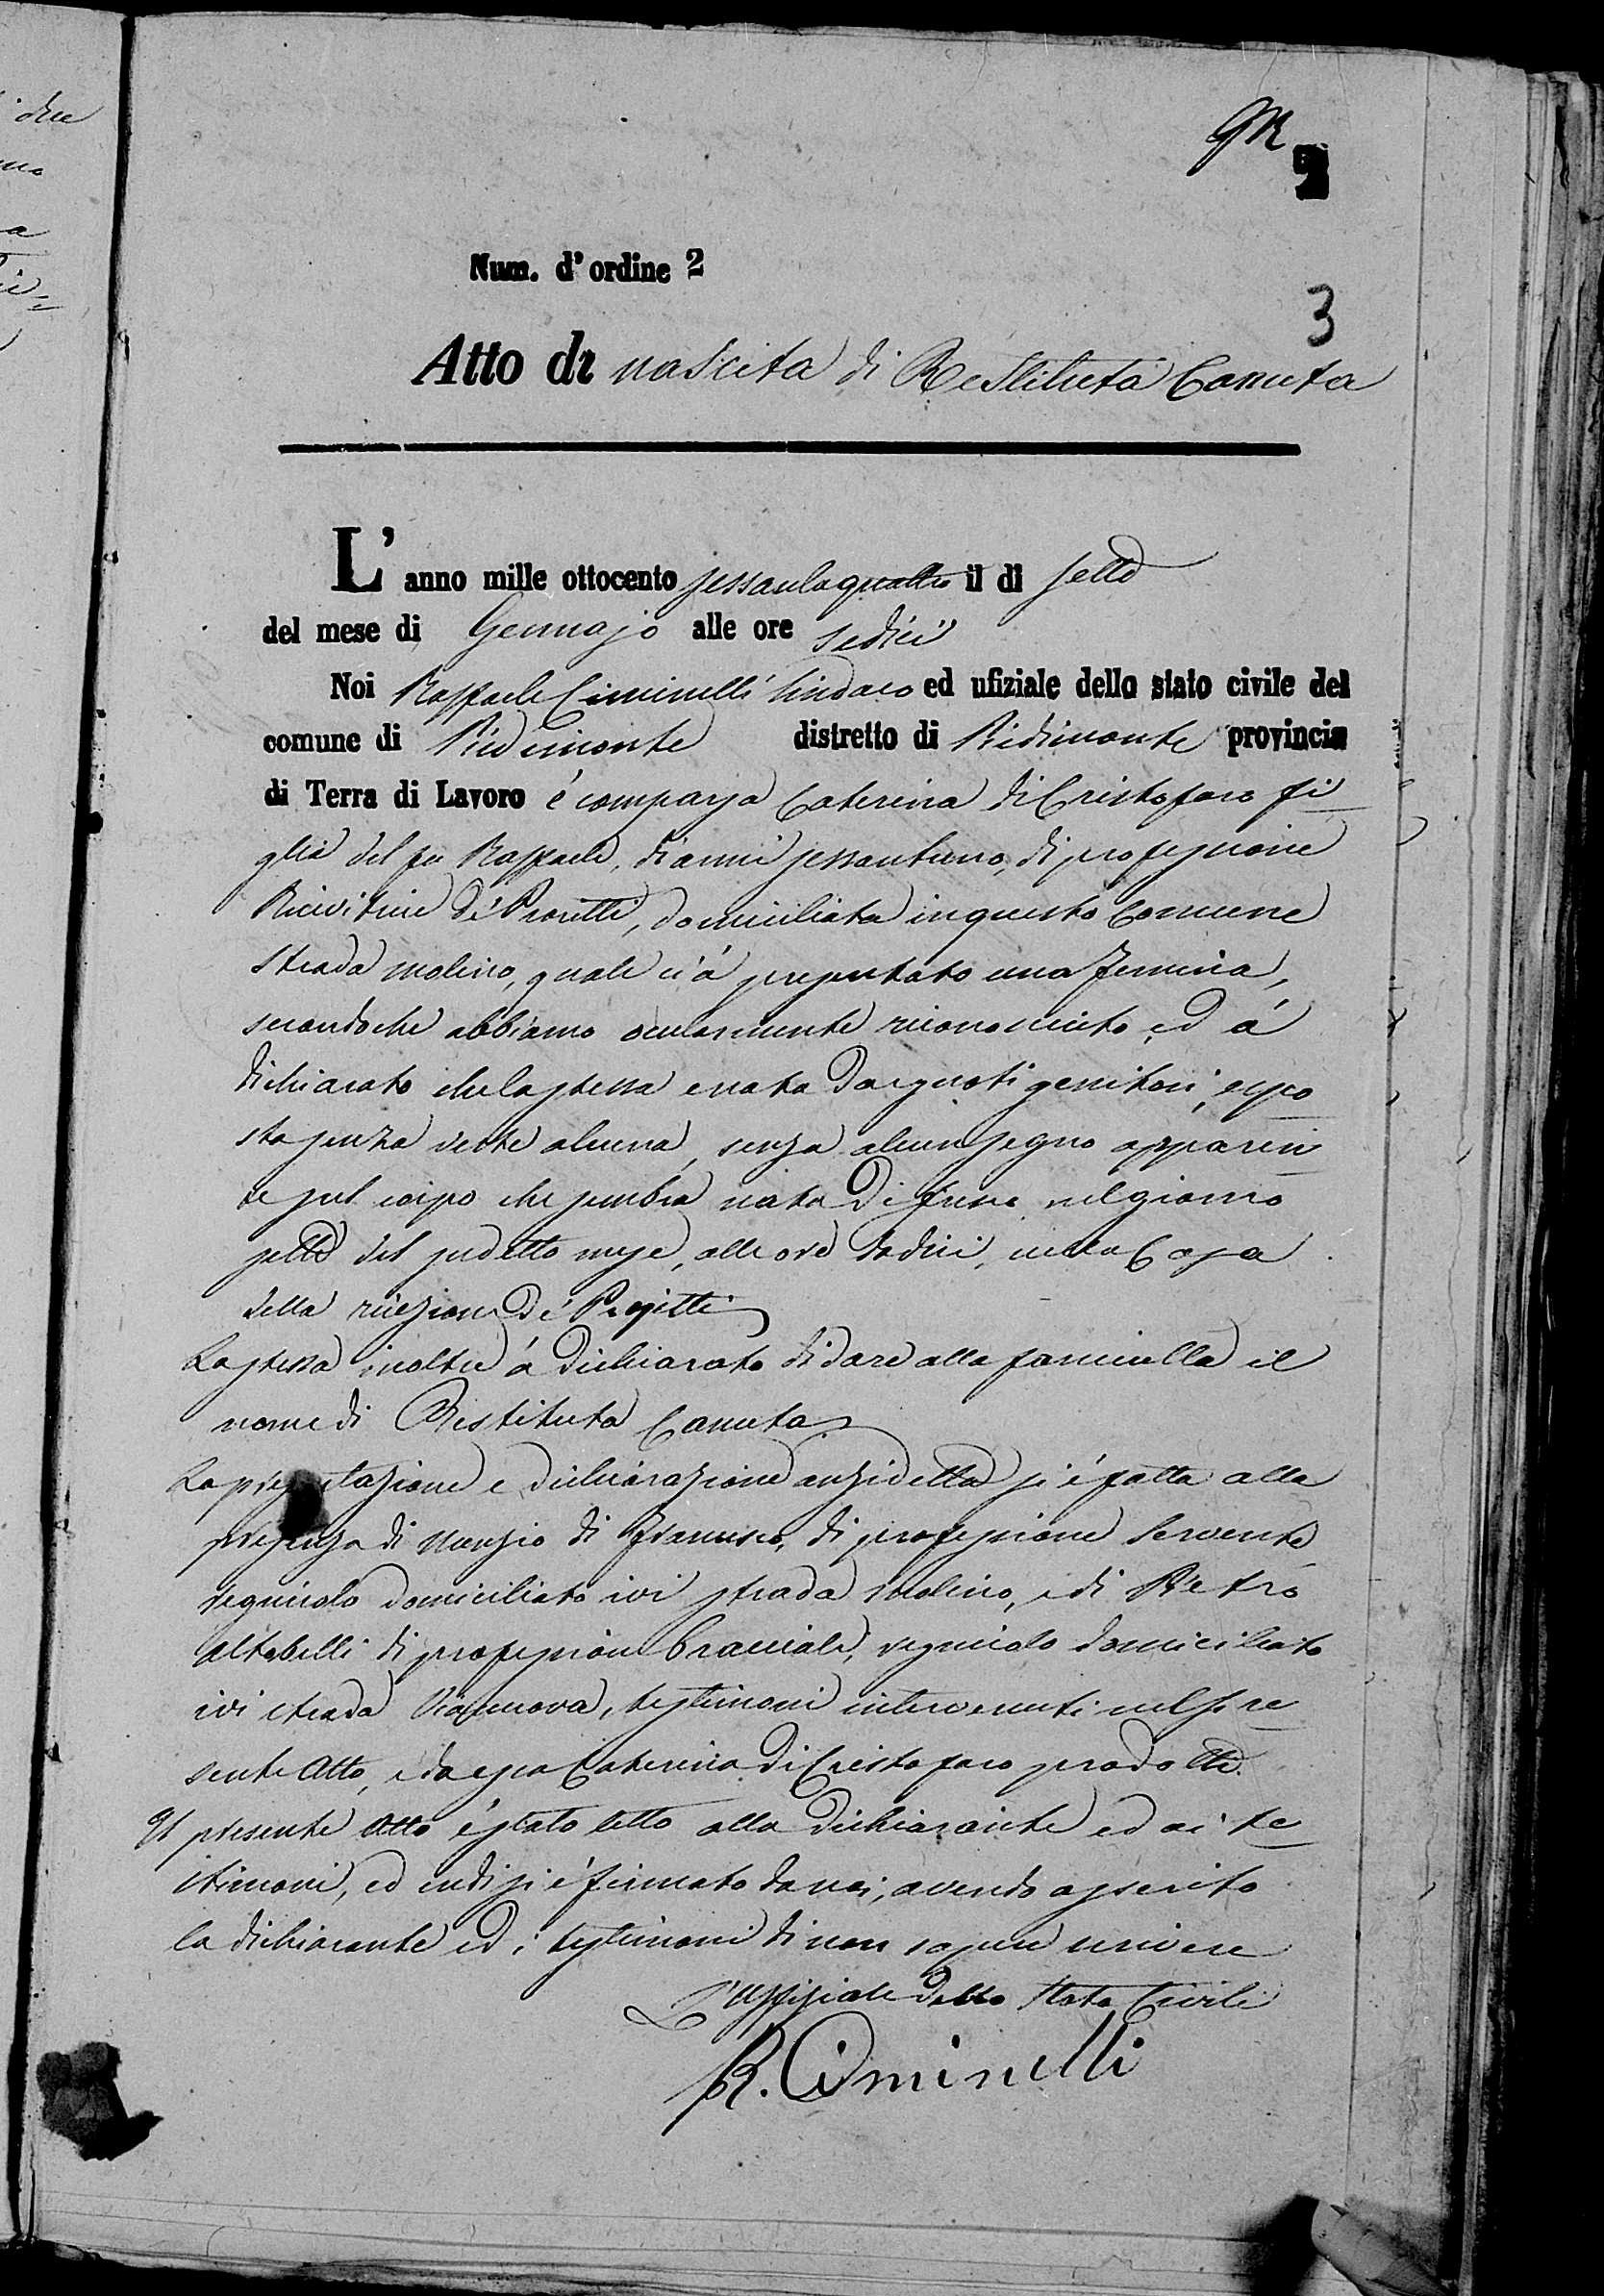 due
a
GR
2
Num. d'ordine 2
3
Atto di nascita di Restituta Canuta
L'anno mille ottocento sessantaquattro il dì sette
del mese di Gennajo alle ore sedici
Noi Raffaele Ciminelli Sindaco ed ufiziale dello stato civile del
comune di Piedimonte distretto di Piedimonte provincia
di Terra di Lavoro é comparsa Caterina di Cristofaro fi
glia del fu Raffaele, di anni sessantuno, di professione
Ricevitrice de' Proietti, domiciliata in questo Comune
Strada molino, quale ci á presentato una femina,
secondoche abbiamo ocularmente riconosciuto, ed á
dichiarato che la stessa e nata da ignoti genitori, espo
sta senza veste alcuna, senza alcun segno apparen
te sul corpo che sembra nata di fresco nel giorno
sette del sudetto mese, alle ore dodici, nella Casa
della riezione de' Projetti
La stessa inoltre á dichiarato di dare alla fanciulla il
nome di Restituta Canuta
La presentazione e dichiarazione anzidetta si é fatta alla
presenza di Nunzio di Francesco, di professione Servente
regnicolo domiciliato ivi strada molino, e di Pietro
Altobelli di professione bracciale, regnicolo domiciliato
ivi strada Vianuova, testimoni intervenuti nel pre
sente Atto, e da essa Caterina di Cristofaro prodotti.
Il presente atto é stato letto alla dichiarante ed ai te
stimoni, ed indi si é firmato da noi, avendo asserito
la dichiarante ed i testimoni di non sapere scrivere
L'Uffiziale dello Stato Civile
R. Ciminelli